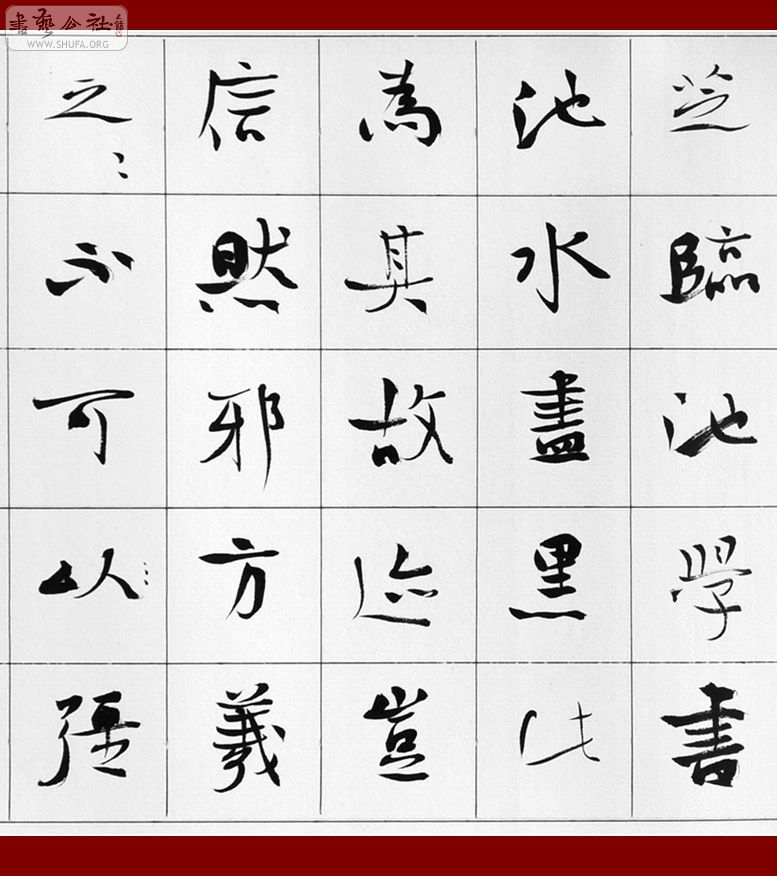 書藝公社
WWW.SHUFA.ORG
芝臨池學書
池水盡黑此
為其故迹豈
信然邪方羲
之〻不可以強